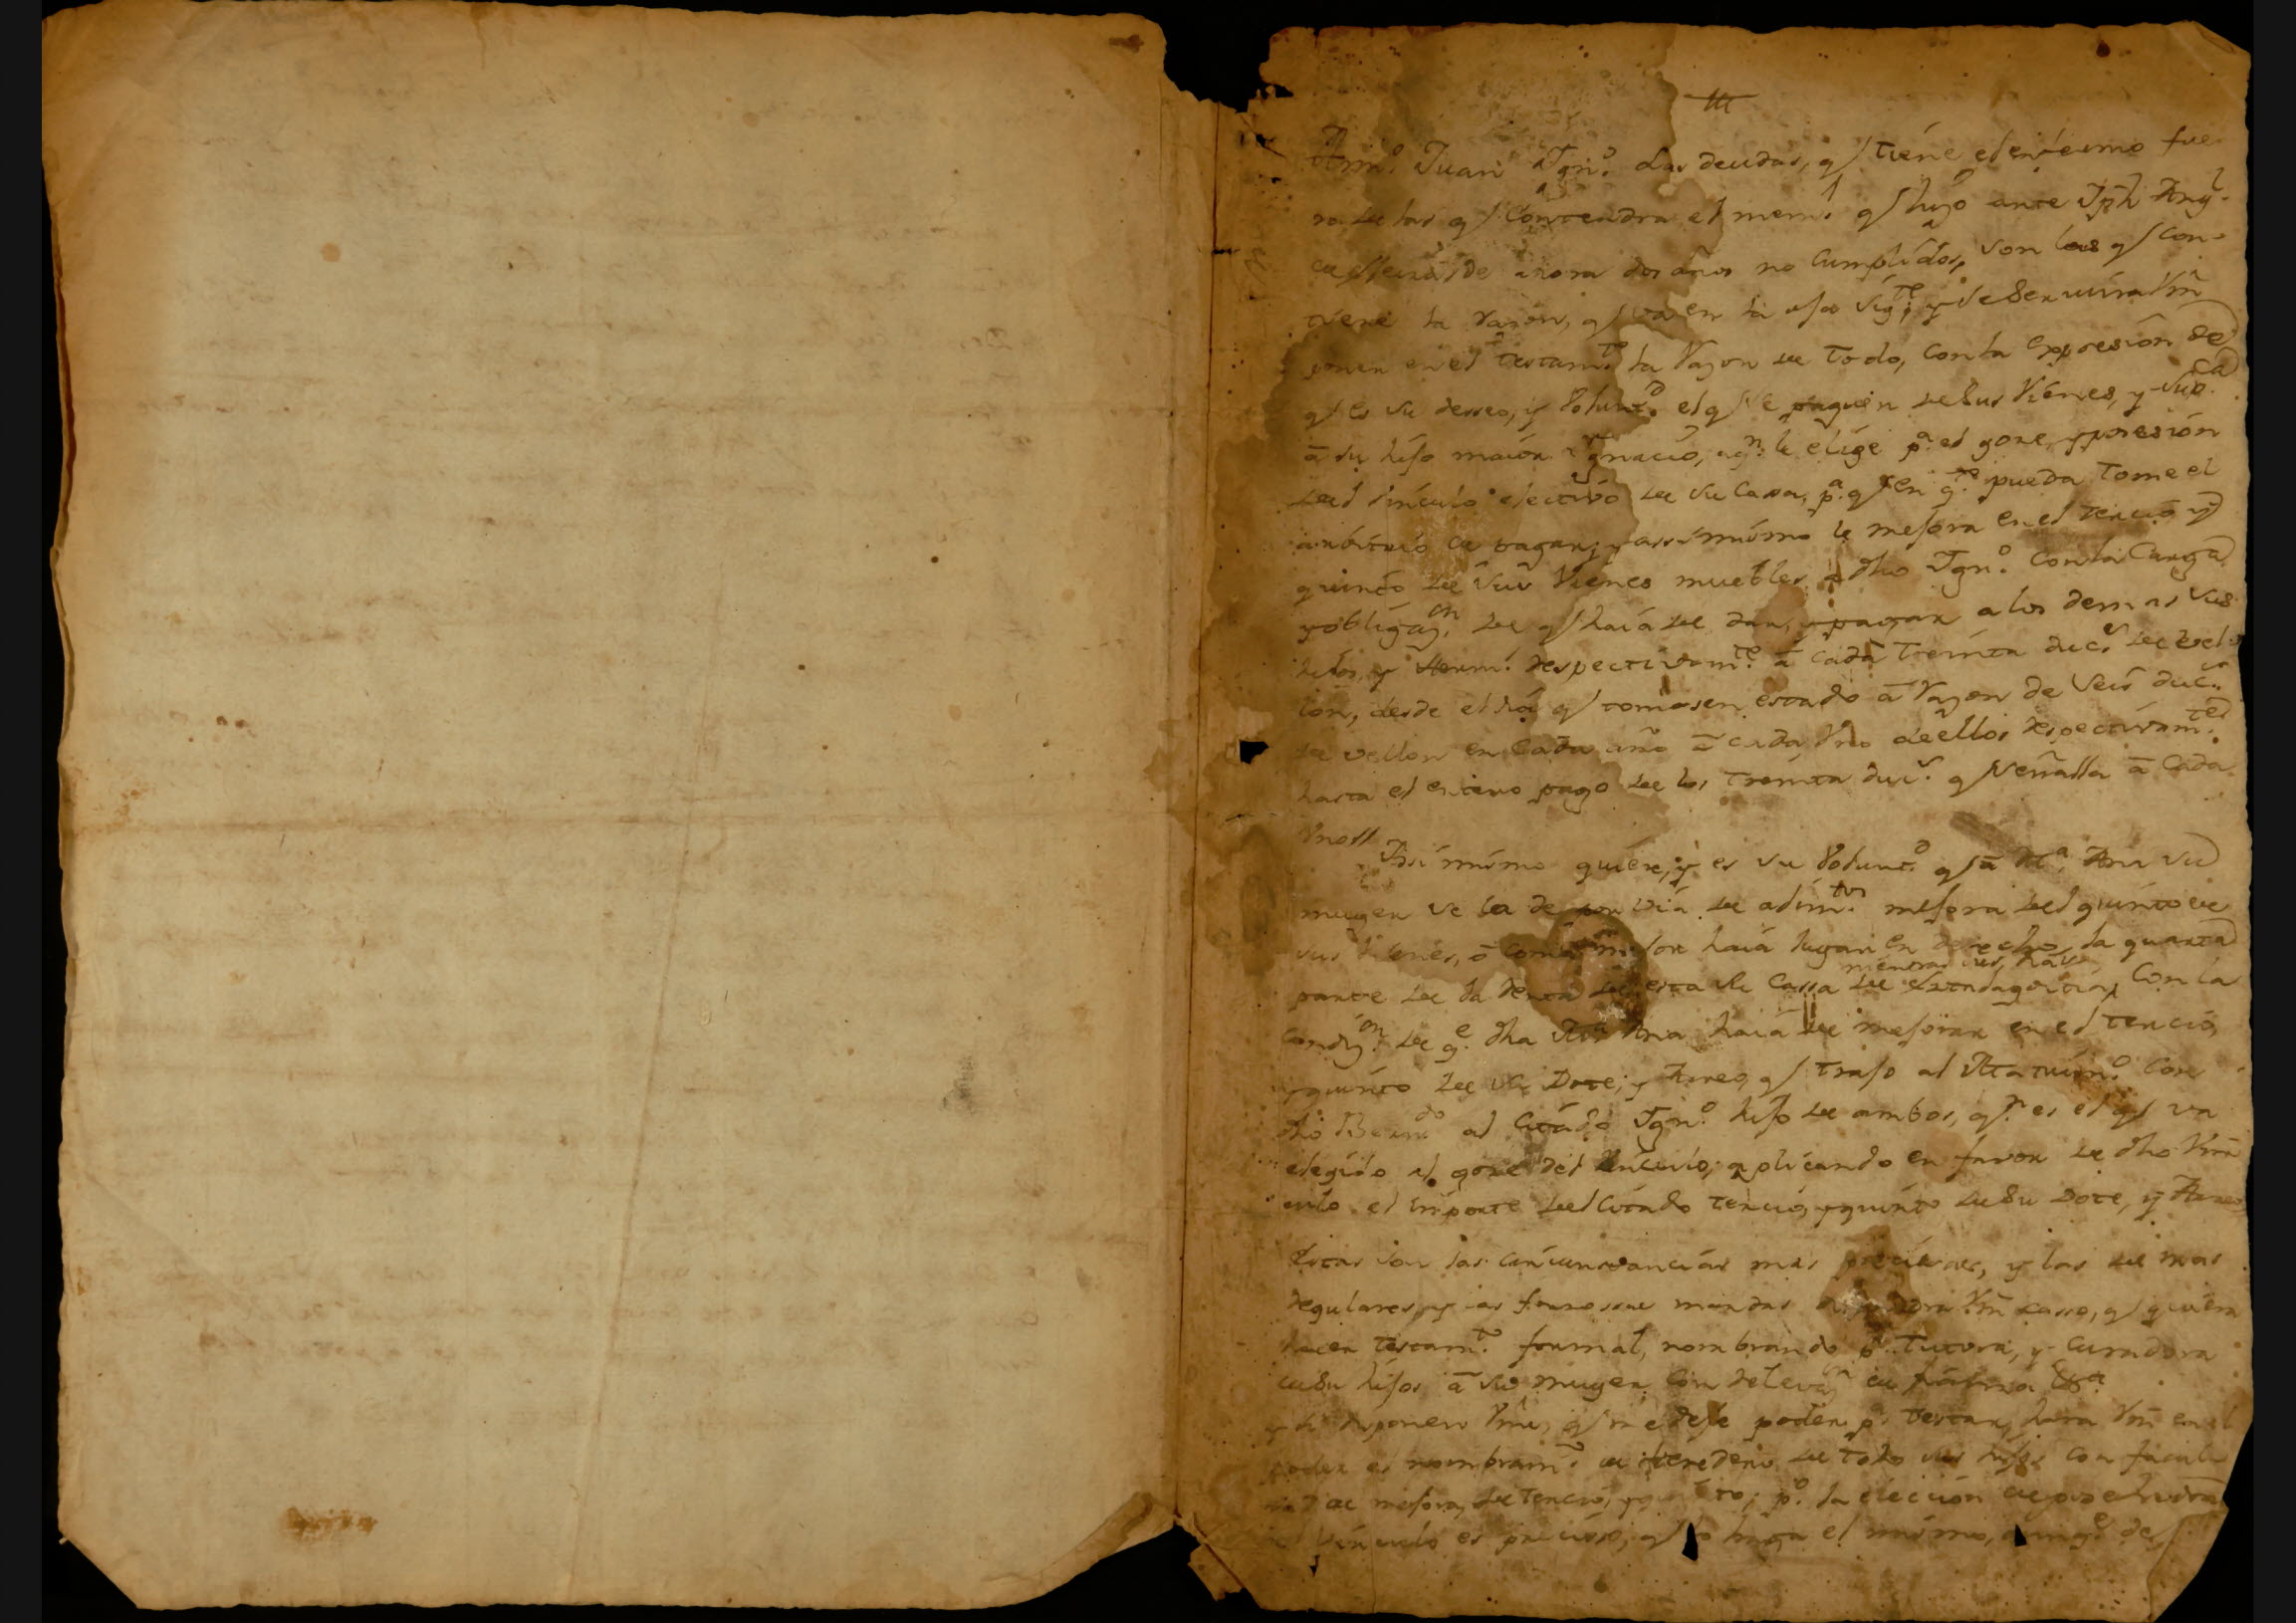 Amº Juan Ignº Las deudas, q tiene el enfermo fue
ra de las q Contendra el meml q hizo ante Jph Angl
de ahora dos años no Cumplidos, son las q con
tiene la razon, q va en la oja sigte y se servira Vm
poner en el testamto la Razon de todo, con la expresion de
q es su desseo, y Voluntd el q se paguen de sus Vienes, y supca
a su hijo maior Ignacio, a qn le elige pa el goze, y posesion
del Vinculo electivo de su Cassa, pa q en qto pueda tome el
arbitrio de pagar; y assimismo le mejora en el tercio y
quinto de sus Vienes muebles a dho Ignº Con la Carga
y obligaon de q haia de dar, y pagar a los demas sus
hijos, y Herms respectivamte a cada treinta ducs de vel
lon, desde el dia q tomasen estado a Razon de seis ducs
de vellon en Cada año a cada Vno de ellos respectivamte
hasta el entero pago de los treinta ducs q señalla a Cada
Vno
Assimismo quiere, y es su Voluntd q a Ma Ana su
muger se la de por via de mejora del quinto de
sus Vienes, o como mejor haia lugar en derecho, la quarta
mientras
parte de la renta de esta su Cassa de Con la
Condon de qe dha Ma Ana haia de mejorar en el tercio,
y quinto de su Dote, y Arreo, q trajo al Matrimº Con
dho Berndo al Citado Ignº hijo de ambos, qn es el q va
elegido al goze del Vinculo; aplicando en favor de dho Vin
culo el importe del Citado tercio, y quinto de su Dote, y Arreo,
Estas son las circunstancias mas precisas, y las demas
regulares, y las forzossas mandas Vm casso, q quiera
hacer testamto formal, nombrando pr Tutora, y Curadora
de su hijos a su muger Con relevaon de fianza &a
y si disponen Vms, q se deje poder pa testar, hara Vm en el
poder el nombramto de heredero de todo sus hijos con facul
tad de mejora, de tercio, y quinto; pº la eleccion de
del Vinculo es preciso, q lo haga el mismo,